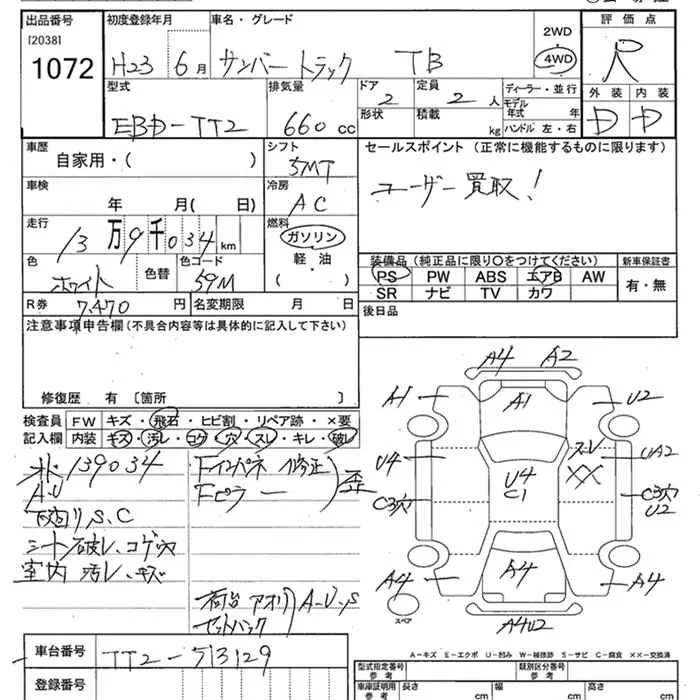 出品番号
[2038]
1072
初度登録年月
H23 6月
車名・グレード
サンバートラック TB
2WD
4WD
評価点
R
外装 内装
D D
型式
EBD-TT2
排気量
660 cc
ドア
2
形状
定員
2 人
積載
kg
ディーラー・並行
モデル
年式 年
ハンドル 左・右
車歴
自家用・( )
シフト
5MT
車検
年 月( 日)
冷房
AC
走行
13万9千034 km
燃料
ガソリン
軽・油
( )
色
ホワイト
色替
色コード
59M
R券
7,470 円
名変期限 月 日
セールスポイント (正常に機能するものに限ります)
ユーザー買取!
装備品 (純正品に限り○をつけてください)
PS PW ABS エアB AW
SR ナビ TV カワ
新車保証書
有・無
後日品
注意事項申告欄 (不具合内容等は具体的に記入して下さい)
修復歴 有 〔箇所 〕
検査員
記入欄
FW キズ・飛石・ヒビ割・リペア跡・×要
内装 キズ・汚レ・コゲ・穴・スレ・キレ・破レ
139034
A.U
下廻りS、C
シート破レ、コゲ穴
室内 汚レ、キズ
Fインパネ 修正
Fピラー 歪
荷台 アオリ A-U、S
セットバック
A4 A2
A1 A1 U2
U4 U4 C1 スレ XX UA2
C3穴 C3穴 U2
A4 A4 A4
スペア
A4U2
A-キズ E-エクボ U-凹み W-補修跡 S-サビ C-腐食 XX-交換済
車台番号
TT2-513129
登録番号
型式指定番号
参考
類別区分番号
参考
車庫証明用
参考
長さ cm
幅 cm
高さ cm